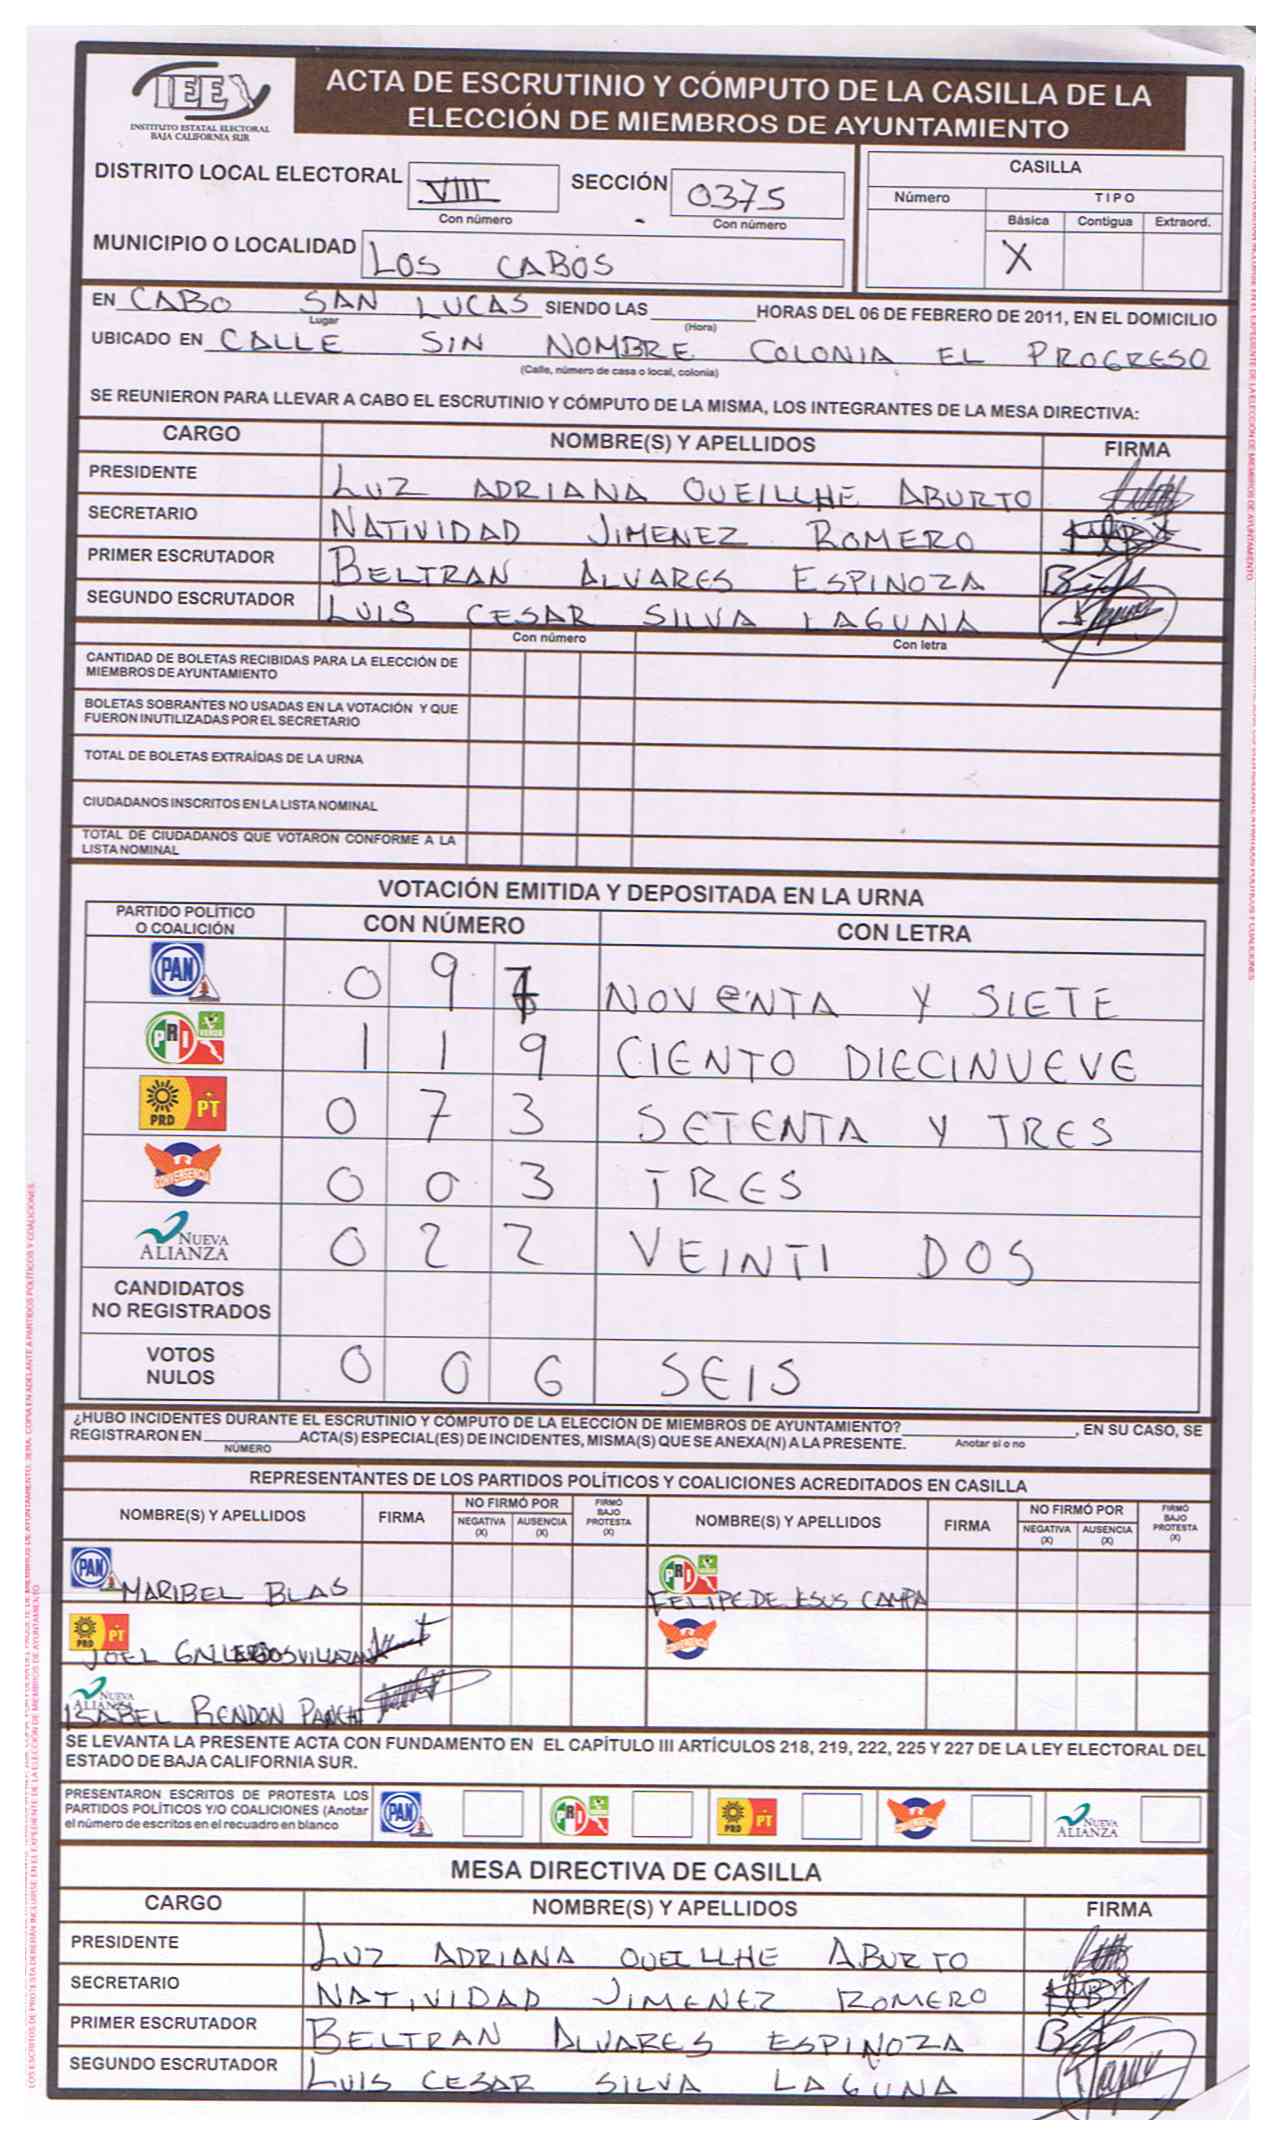 IEE
INSTITUTO ESTATAL ELECTORAL
BAJA CALIFORNIA SUR
ACTA DE ESCRUTINIO Y CÓMPUTO DE LA CASILLA DE LA
ELECCIÓN DE MIEMBROS DE AYUNTAMIENTO
DISTRITO LOCAL ELECTORAL VIII SECCIÓN 0375
Con número Con número
MUNICIPIO O LOCALIDAD LOS CABOS
CASILLA
Número TIPO
Básica Contigua Extraord.
X
EN CABO SAN LUCAS SIENDO LAS HORAS DEL 06 DE FEBRERO DE 2011, EN EL DOMICILIO
Lugar (Hora)
UBICADO EN CALLE SIN NOMBRE COLONIA EL PROGRESO
(Calle, número de casa o local, colonia)
SE REUNIERON PARA LLEVAR A CABO EL ESCRUTINIO Y CÓMPUTO DE LA MISMA, LOS INTEGRANTES DE LA MESA DIRECTIVA:
CARGO NOMBRE(S) Y APELLIDOS FIRMA
PRESIDENTE LUZ ADRIANA OUEILLHE ABURTO
SECRETARIO NATIVIDAD JIMENEZ ROMERO
PRIMER ESCRUTADOR BELTRAN ALVARES ESPINOZA
SEGUNDO ESCRUTADOR LUIS CESAR SILVA LAGUNA
Con número Con letra
CANTIDAD DE BOLETAS RECIBIDAS PARA LA ELECCIÓN DE
MIEMBROS DE AYUNTAMIENTO
BOLETAS SOBRANTES NO USADAS EN LA VOTACIÓN Y QUE
FUERON INUTILIZADAS POR EL SECRETARIO
TOTAL DE BOLETAS EXTRAÍDAS DE LA URNA
CIUDADANOS INSCRITOS EN LA LISTA NOMINAL
TOTAL DE CIUDADANOS QUE VOTARON CONFORME A LA
LISTA NOMINAL
VOTACIÓN EMITIDA Y DEPOSITADA EN LA URNA
PARTIDO POLÍTICO
O COALICIÓN CON NÚMERO CON LETRA
PAN 0 9 7 NOVENTA Y SIETE
PRI VERDE 1 1 9 CIENTO DIECINUEVE
PRD PT 0 7 3 SETENTA Y TRES
CONVERGENCIA 0 0 3 TRES
NUEVA
ALIANZA 0 2 2 VEINTI DOS
CANDIDATOS
NO REGISTRADOS
VOTOS
NULOS 0 0 6 SEIS
¿HUBO INCIDENTES DURANTE EL ESCRUTINIO Y CÓMPUTO DE LA ELECCIÓN DE MIEMBROS DE AYUNTAMIENTO? , EN SU CASO, SE
REGISTRARON EN ACTA(S) ESPECIAL(ES) DE INCIDENTES, MISMA(S) QUE SE ANEXA(N) A LA PRESENTE. Anotar si o no
NÚMERO
REPRESENTANTES DE LOS PARTIDOS POLÍTICOS Y COALICIONES ACREDITADOS EN CASILLA
NOMBRE(S) Y APELLIDOS FIRMA NO FIRMÓ POR NEGATIVA (X) AUSENCIA (X) FIRMÓ BAJO PROTESTA (X) NOMBRE(S) Y APELLIDOS FIRMA NO FIRMÓ POR NEGATIVA (X) AUSENCIA (X) FIRMÓ BAJO PROTESTA (X)
PAN MARIBEL BLAS PRI VERDE FELIPE DE JESUS CAMPA
PRD PT JOEL CONVERGENCIA
NUEVA ALIANZA ISABEL RENDON
SE LEVANTA LA PRESENTE ACTA CON FUNDAMENTO EN EL CAPÍTULO III ARTÍCULOS 218, 219, 222, 225 Y 227 DE LA LEY ELECTORAL DEL
ESTADO DE BAJA CALIFORNIA SUR.
PRESENTARON ESCRITOS DE PROTESTA LOS
PARTIDOS POLÍTICOS Y/O COALICIONES (Anotar
el número de escritos en el recuadro en blanco
PAN PRI VERDE PRD PT CONVERGENCIA NUEVA ALIANZA
MESA DIRECTIVA DE CASILLA
CARGO NOMBRE(S) Y APELLIDOS FIRMA
PRESIDENTE LUZ ADRIANA OUEILLHE ABURTO
SECRETARIO NATIVIDAD JIMENEZ ROMERO
PRIMER ESCRUTADOR BELTRAN ALVARES ESPINOZA
SEGUNDO ESCRUTADOR LUIS CESAR SILVA LAGUNA